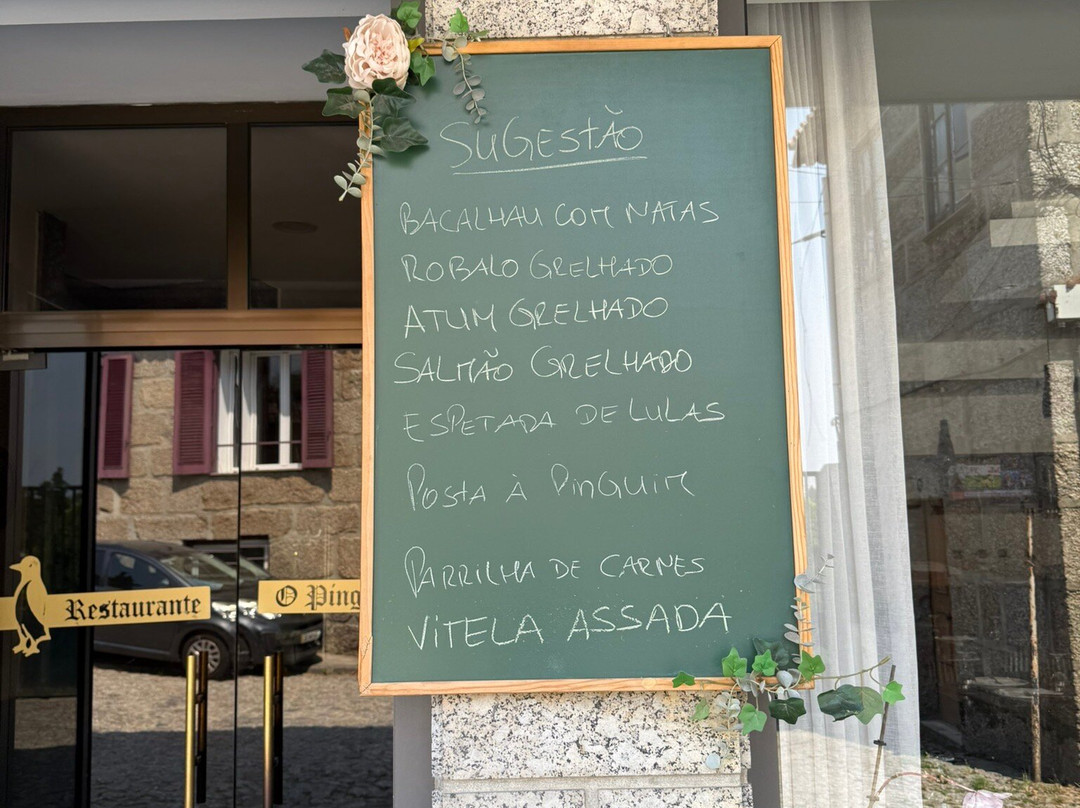 SUGESTÃO
BACALHAU COM NATAS
ROBALO GRELHADO
ATUM GRELHADO
SALMÃO GRELHADO
ESPETADA DE LULAS
POSTA À PINGUIM
PARRILHA DE CARNES
VITELA ASSADA
Restaurante
O Ping